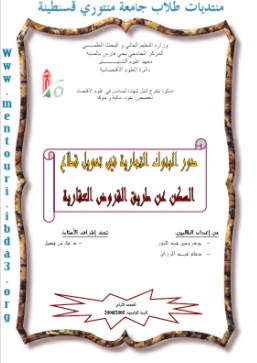 منتديات طلاب جامعة منتوري قسنطينة
www.mentouri.ibda3.org
وزارة التعليم العالي و البحث العلمي
المركز الجامعي يحي فارس بالمدية
معهد علوم التسيير
دائرة العلوم الاقتصادية
مذكرة تخرج لنيل شهادة ليسانس في علوم الاقتصاد
تخصص: نقود، مالية و بنوك
دور البنوك التجارية في تمويل قطاع
السكن عن طريق القروض العقارية
من إعداد الطالبين:
تحت إشراف الأستاذ: